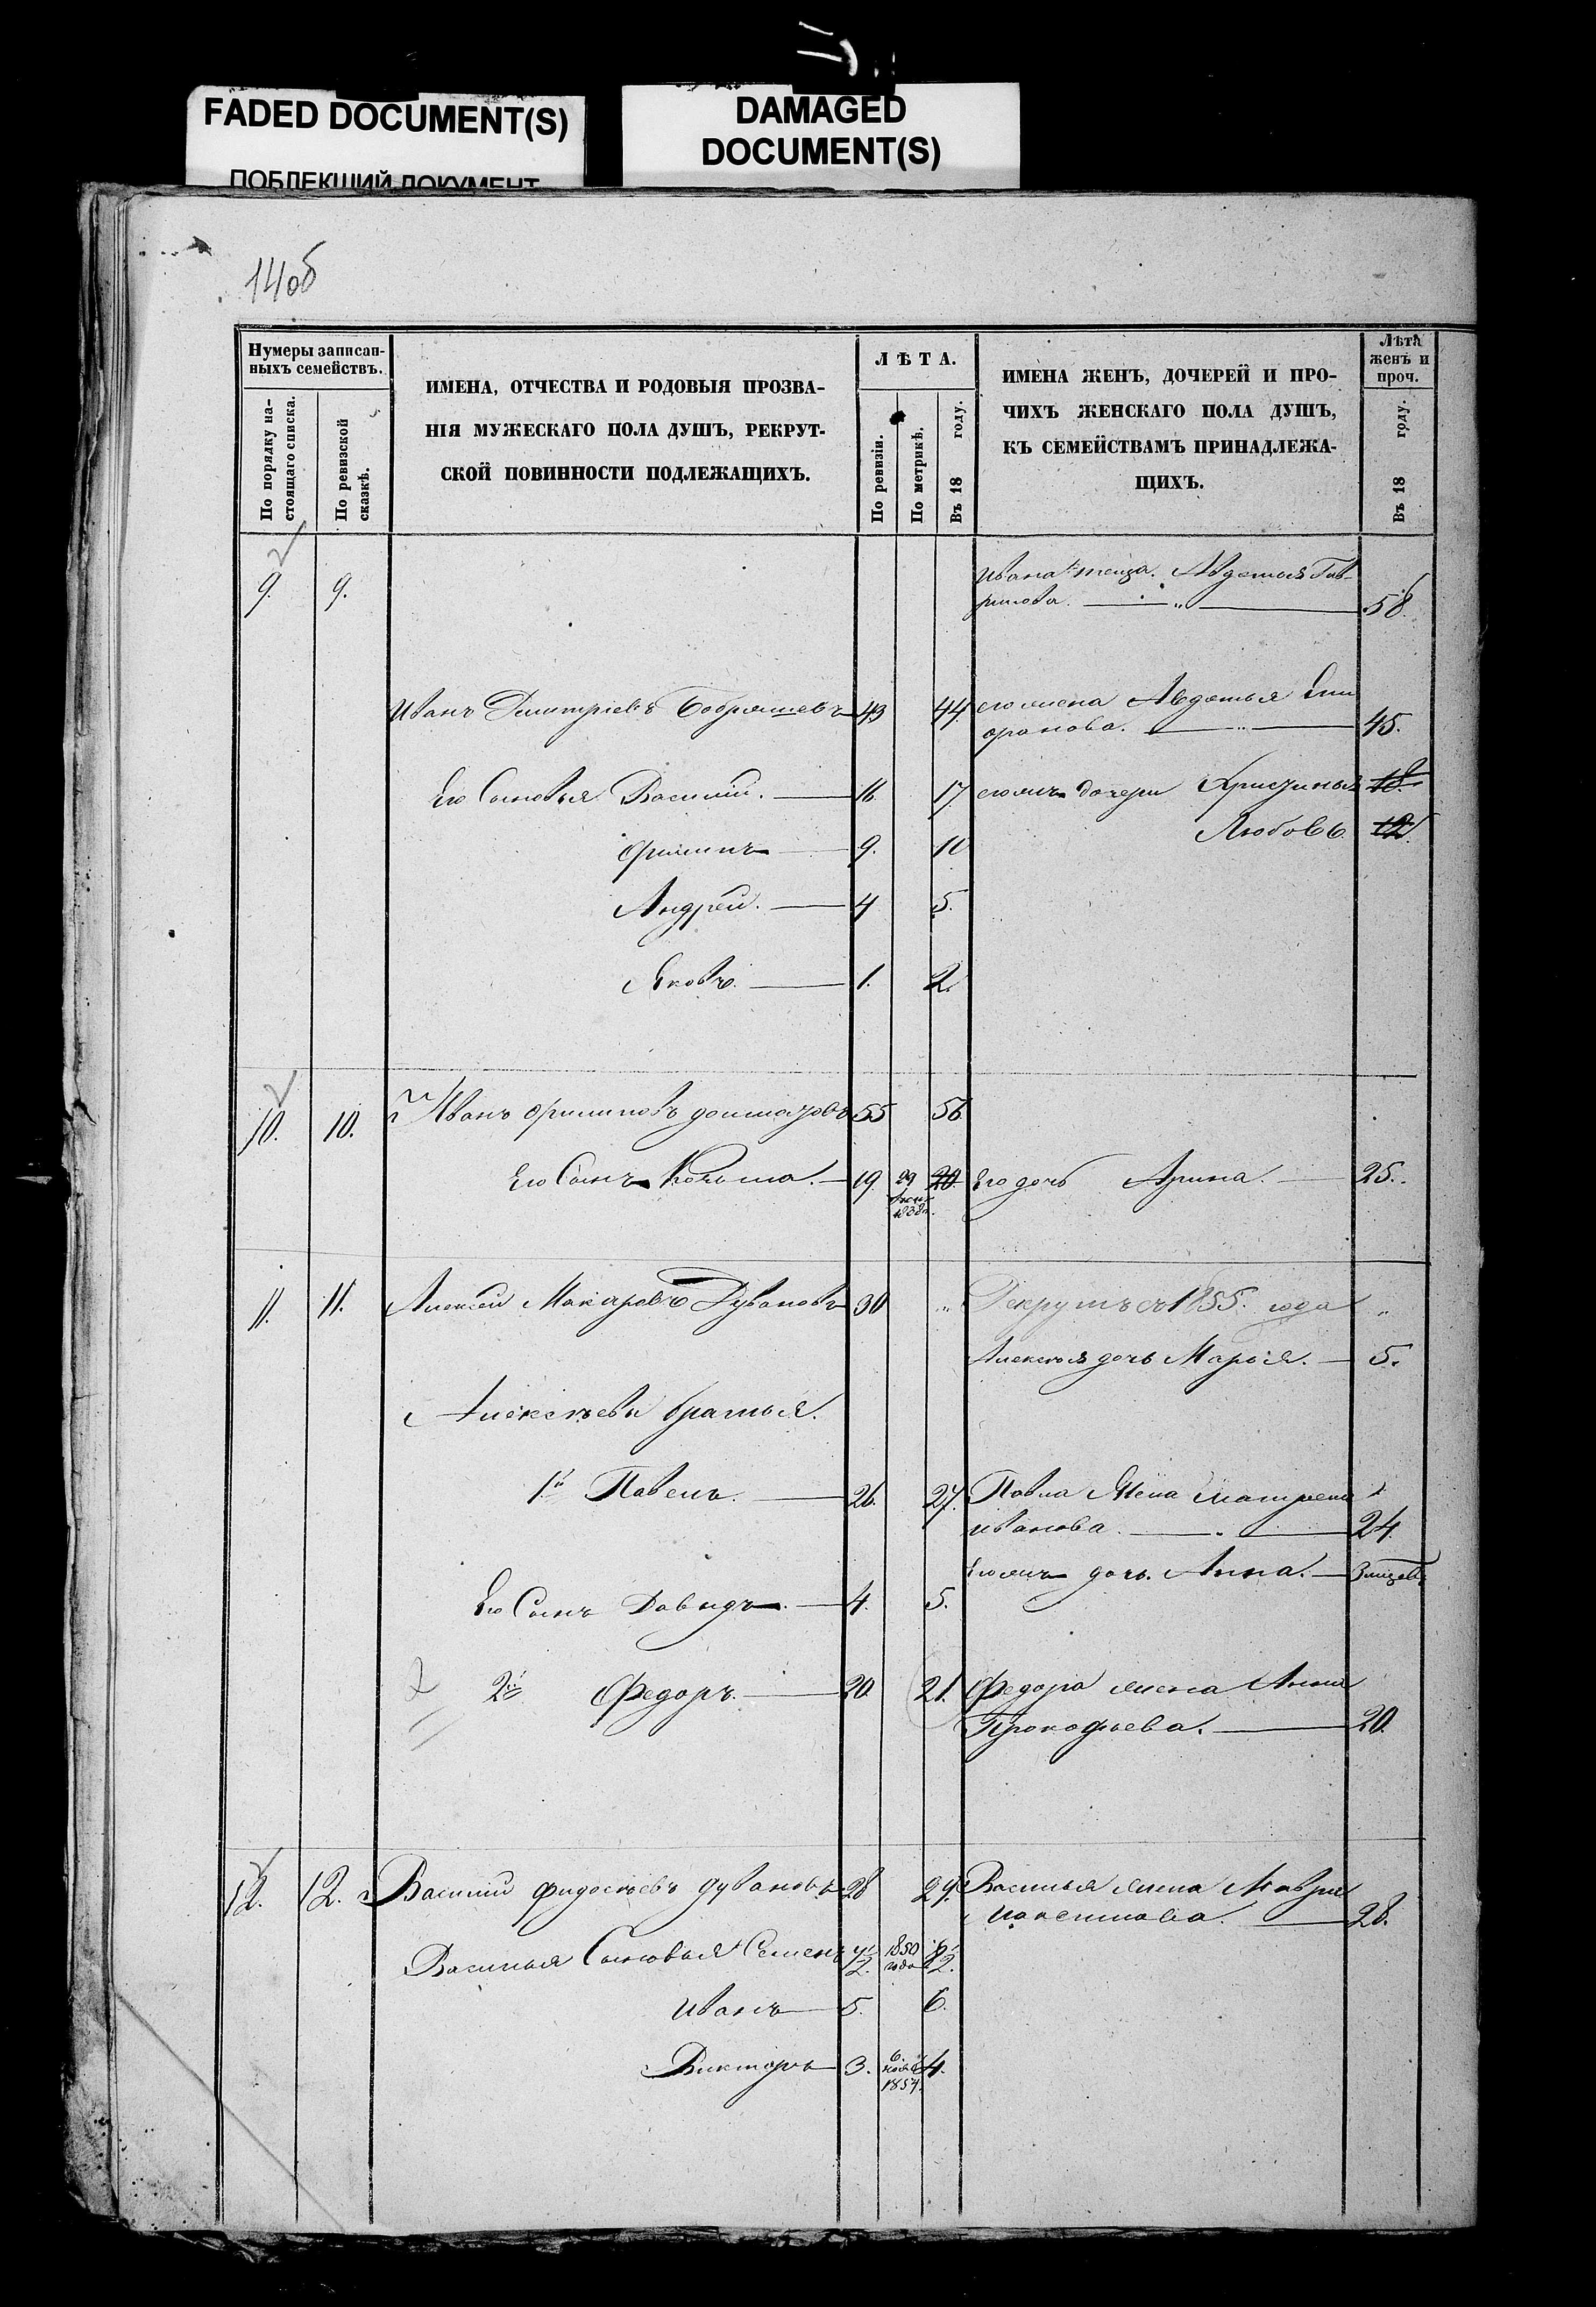 FADED DOCUMENT(S)
ПОБЛЕКШИЙ ДОКУМЕНТ
DAMAGED
DOCUMENT(S)
14об
Нумеры записан-
ныхъ семействъ.
По порядку на-
стоящаго списка.
По ревизской
сказкѣ.
ИМЕНА, ОТЧЕСТВА И РОДОВЫЯ ПРОЗВА-
НІЯ МУЖЕСКАГО ПОЛА ДУШЪ, РЕКРУТ-
СКОЙ ПОВИННОСТИ ПОДЛЕЖАЩИХЪ.
ЛѢТА.
По ревизіи.
По метрикѣ.
Въ 18 году.
ИМЕНА ЖЕНЪ, ДОЧЕРЕЙ И ПРО-
ЧИХЪ ЖЕНСКАГО ПОЛА ДУШЪ,
КЪ СЕМЕЙСТВАМЪ ПРИНАДЛЕЖА-
ЩИХЪ.
Лѣта
женъ и
проч.
Въ 18 году.
9. 9. Ивана теща Авдотья Гав-
рилова. 58.
Иванъ Дмитріевъ 43 44 его жена Авдотья
45.
Его Сыновья Василий. 16 17 его жъ дочери 18.
Филипъ 9. 10 Любовь 12.
Андрей. 4 5.
Яковъ. 1. 2.
10. 10. Иванъ Филиповъ 55 56
Его Сынъ Козьма. 19 29 20. Его дочь Арина. 25.
1838
11. 11. Алексей Макаровъ Дувановъ 30 „ Рекрутъ съ 1855. года „
Алексея дочь Марья. 5.
Алексеевы братья.
1й Павелъ. 26. 27. Павла жена Матрена
Иванова 24.
Его Сынъ Давыдъ. 4. 5. Его жъ дочь Анна.
2й Федоръ. 20 21. Федора жена Анна
Прокофьева. 20.
12. 12. Василий Дувановъ 28 29. Василья жена Мавра
Максимова. 28.
Василья Сыновья Семенъ 1850
года
Иванъ 5. 6.
Викторъ 3. 6. 4.
1854.